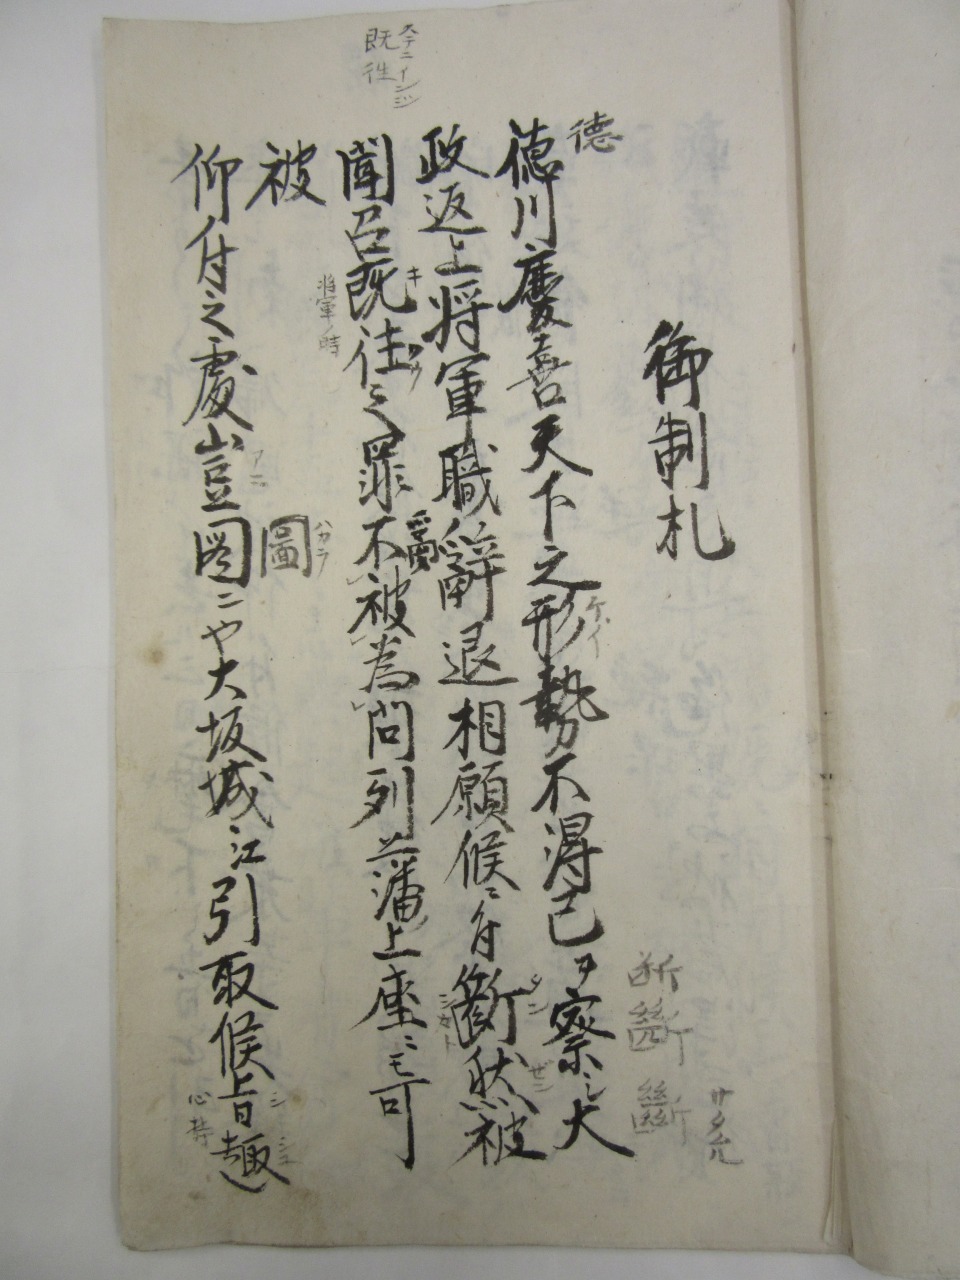 御制札
徳
徳川慶喜天下之形勢不得已ヲ察シ大
ケイ
断斷斷
政返上将軍職辭退相願候ニ付斷然被
タン
ゼン
シカト
聞召既往之罪不被為問列藩上座ニモ可
キ
将軍ノ時
既往
スデニ
被
仰付之處豈図ニや大坂城江引取候旨趣
アニ
圖
ハカラ
シ
シュ
心持